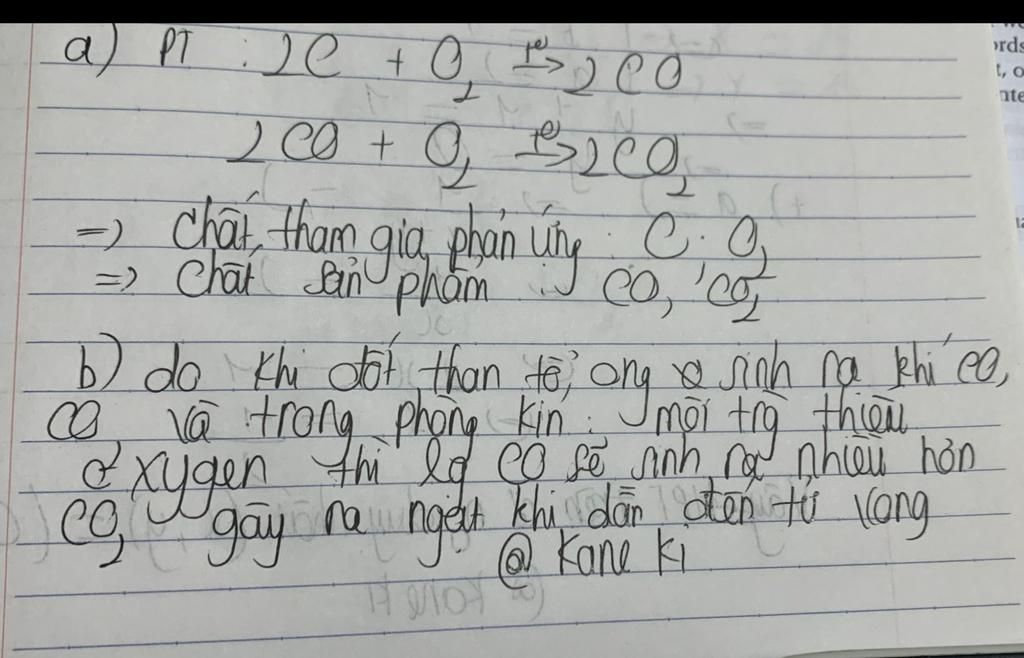 a) PT : 2C + O₂ t°→ 2CO
2CO + O₂ t°→ 2CO₂
=> Chất tham gia phản ứng : C, O₂
=> Chất sản phẩm : CO, CO₂
b) do khi đốt than tổ ong sinh ra khí CO,
CO₂ và trong phòng kín : môi trg thiếu
oxygen thì lg CO sẽ sinh ra nhiều hơn
CO₂ gây ra ngạt khí dẫn đến tử vong
@ Kane ki
rds
t, o
nte